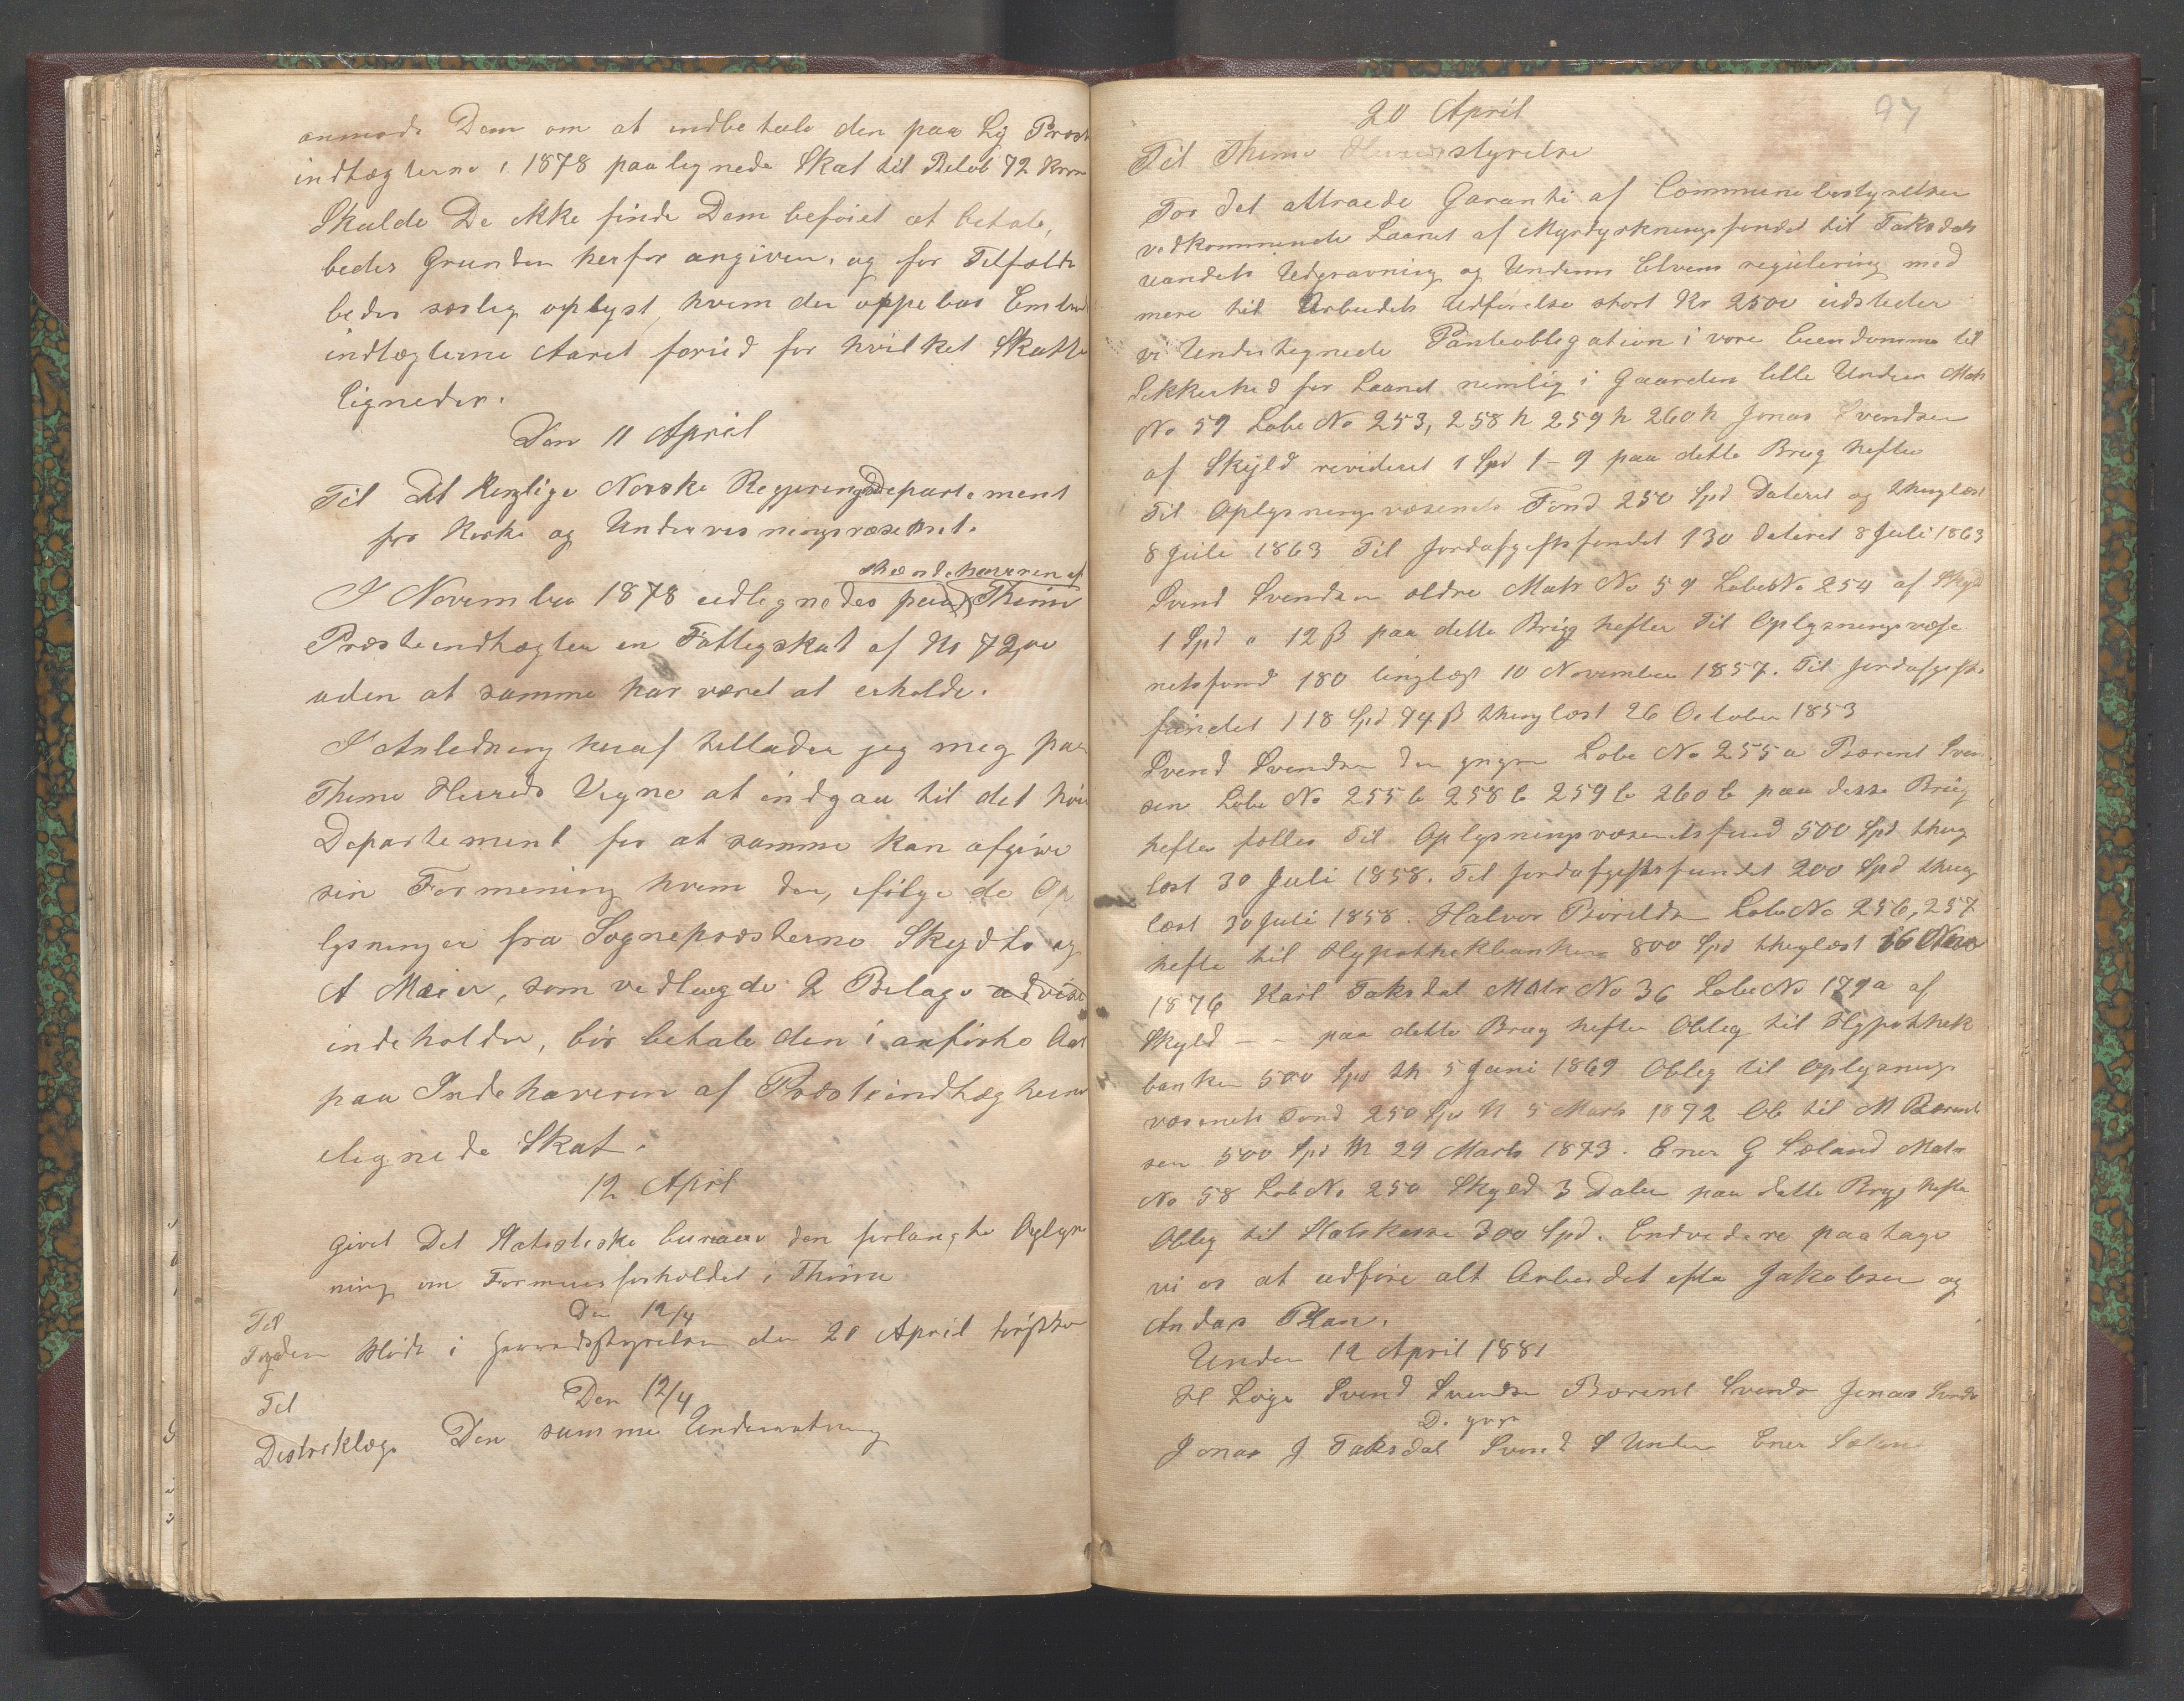 anmode Dem om at indbetale den paa Ly Præst
indtægterne i 1878 paalignede Skat til Beløb 72 Kron
Skulde De ikke finde Dem beføiet at betale,
bedes Grunden herfor angiven, og for Tilfælde
bedes særlig oplyst, hvem der oppebar Embed
indtægterne Aaret forud for hvilket Skatte
lignedes.
Den 11 April
Til Det Kongelige Norske Regjeringsdepartement
for Kirke og Undervisningsvæsenet.
Indehaveren af
I November 1878 udlignedes paa Thime
Præsteindtægter en Fattigskat af Kr 72,00
uden at samme har været at erholde.
I Anledning heraf tillader jeg meg paa
Thime Herreds Vegne at indgaa til det høie
Departement for at samme kan afgive
sin Formening hvem der, ifølge de Op
lysninger fra Sognepræsterne Skydts og
A Meier, som vedlagde 2 Bilage udvise
indeholder, bør betale den i anførte Aar
paa Indehaveren af Præsteindtægterne
ilignede Skat.
12 April
Givet Det Statistiske bureau den forlangte Oplys
ning om Formuesforholdet i Thime
Til Den 12/4
Fogden Møde i Herredsstyrelsen den 20 April
Til Den 12/4
Distriktlæge Den samme Underretning
94
20 April
Til Thime Herredsstyrelse
For det attraaede Garanti af Communebestyrelsen
vedkommende Laanet af Myrdyrkningsfondet til Taksdals
vandets Udgravning og Undems Elvens regulering med
mere til Arbeidets Udførelse stort Kr 2500 udsteder
vi Undertegnede Panteobligation i vore Eiendomme til
Sikkerhed for Laanet nemlig i Gaarden lille Undem Matr
No 59 Løbe No 253, 258 h 259 h 260 h Jonas Svendsen
af Skyld revideret 1 Spd 1-9 paa dette Brug hefter
Til Oplysningsvæsenets Fond 250 Spd Dateret og thinglæst
8 Juli 1863 Til Jordafgiftsfondet 130 dateret 8 Juli 1863
Svend Svendsen ældre Matr No 59 LøbeNo 254 af Skyld
1 Spd 0 12 ß paa dette Brug hefter Til Oplysningsvæse
netsfond 180 tinglæst 10 November 1857. Til Jordafgifts
fondet 118 Spd 94 ß thinglæst 26 October 1853
Svend Svendsen den yngre Løbe No 255 a Bærent Sven
sen Løbe No 255 b 258 b 259 b 260 b paa disse Brug
hefter fælles Til Oplysningsvæsenetsfond 500 Spd thing
læst 30 Juli 1858. Til Jordafgiftsfondet 200 Spd thing
læst 30 Juli 1858. Halvor LøbeNo 256, 257
hefte til Hypothekbanken 800 Spd thinglæst 16 Nov
1876 Karl Taksdal Matr No 36 LøbeNo 179 a af
Skyld - - paa dette Brug hefter Obleg til Hypothek
banken 500 Spd th 5 Juni 1869 Obleg til Oplysnings
væsenets Fond 250 Spd th 5 Marts 1872 Ob til M Bærent
sen 500 Spd th 29 Marts 1873. Ener G Sæland Matr
No 58 LøbNo 250 Skyld 3 Daler paa dette Brug hefte
Obleg til Statskasse 300 Spd. Endvidere paatage
vi os at udføre alt Arbeidet efter Jakobsen og
Andas Plan.
Undem 12 April 1881
H Loge Svend Svendsen Bærent Svends Jonas Svends
D. yngr
Jonas J Taksdal Svend S Undem Ener Sæland